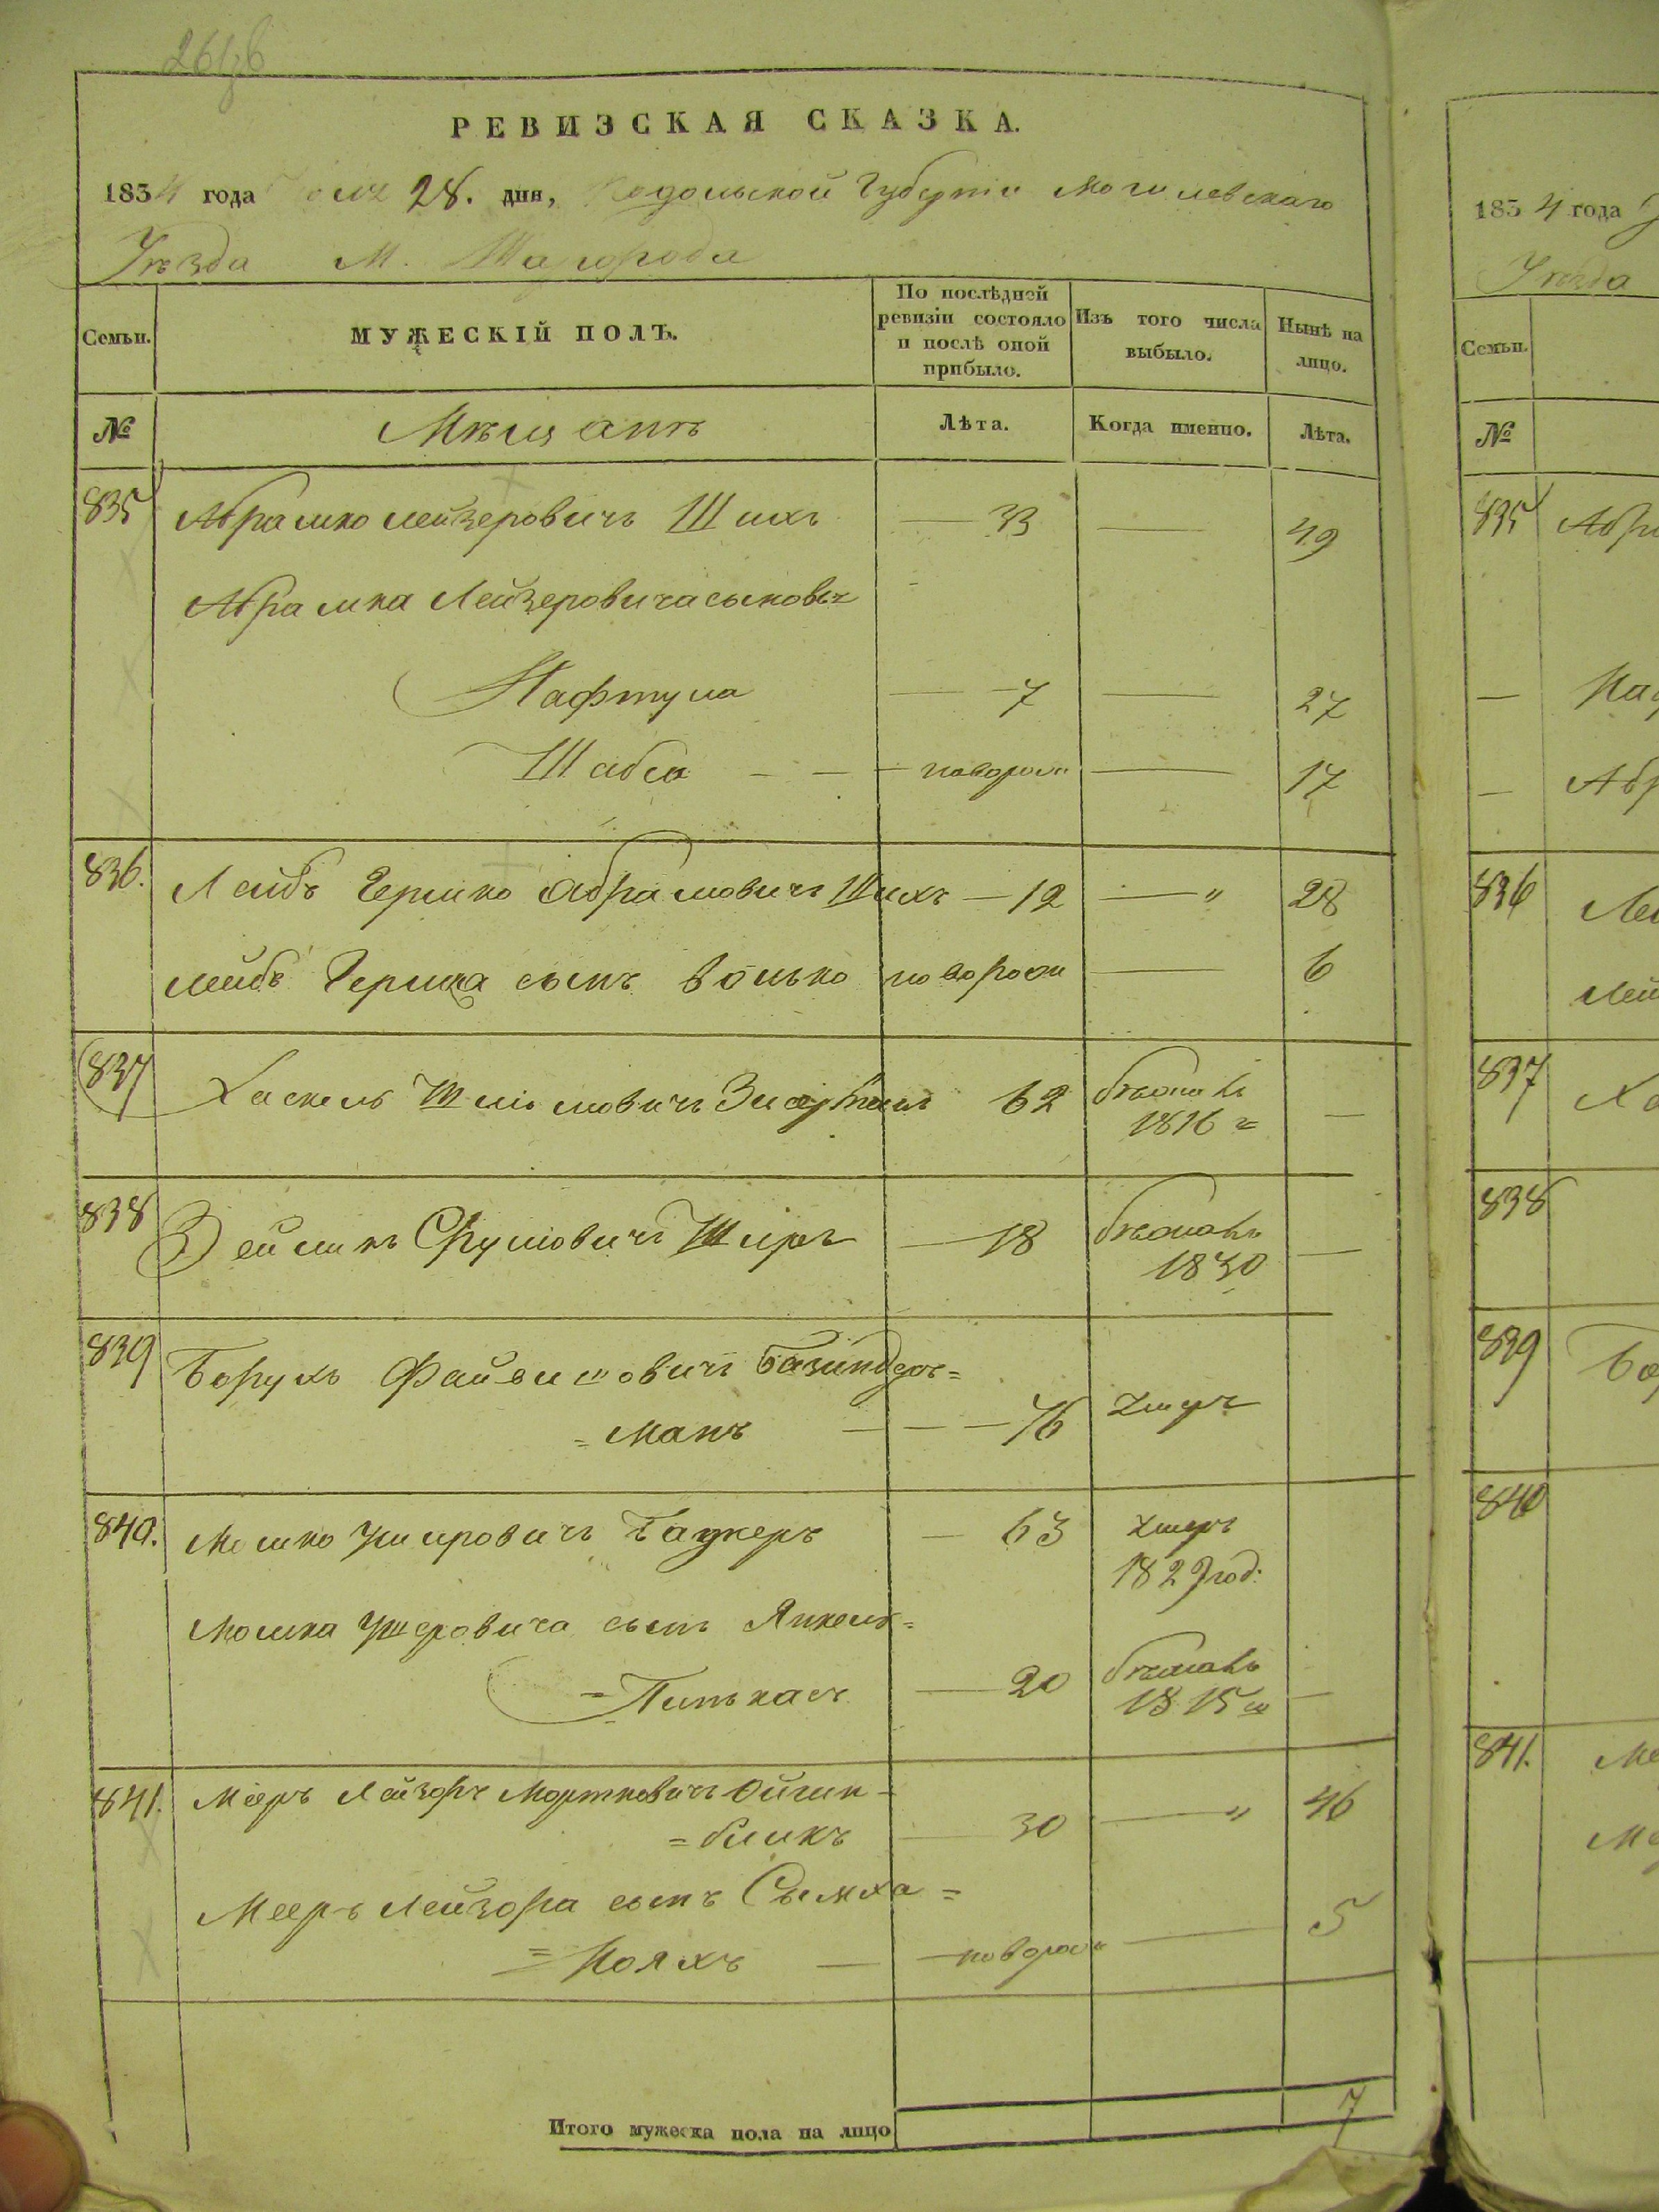 РЕВИЗСКАЯ СКАЗКА.
1834 года 28. дня, Подольской Губерніи Могилевскаго
Уѣзда М. Шагорода
Семьи.
МУЖЕСКІЙ ПОЛЪ.
По послѣдней ревизіи состояло и послѣ оной прибыло.
Изъ того числа выбыло.
Нынѣ на лицо.
№
Мѣщанъ
Лѣта.
Когда именно.
Лѣта.
835 Абрамко Лейзеровичъ Шихъ — 33 — 49
Абрамка Лейзеровича сыновья
Нафтула — 7 — 27
Шабса — — — новорож — 17
836. Лейбъ Гершко Абрамовичъ Шихъ — 12 — " 28
Лейбъ Гершка сынъ Волько новорож — 6
837 Хаскель Шлiомовичъ 62 бѣжалъ
1816 —
838 Зейликъ Сруліовичъ — 18 бѣжалъ
1830 —
839 Борухъ Файвишовичъ
= манъ — — — 76 умеръ
840. Мошко Ушеровичъ — 63 умеръ
1827 год:
Мошка Ушеровича сынъ Янкель=
= Пинькасъ — 20 бѣжалъ
1815 —
841. Мееръ Лейзоръ Мортковичъ Ойгин=
= бликъ — 30 — " 46
Меера Лейзора сынъ Сымха=
= Нояхъ — новорож — 5
Итого мужеска пола на лицо 7
1834 года
Уѣзда
Семьи.
№
835 Абр
—
— Абр
836 Ле
Лей
837 Ха
838
839 Бо
840
841. Ме
Ме